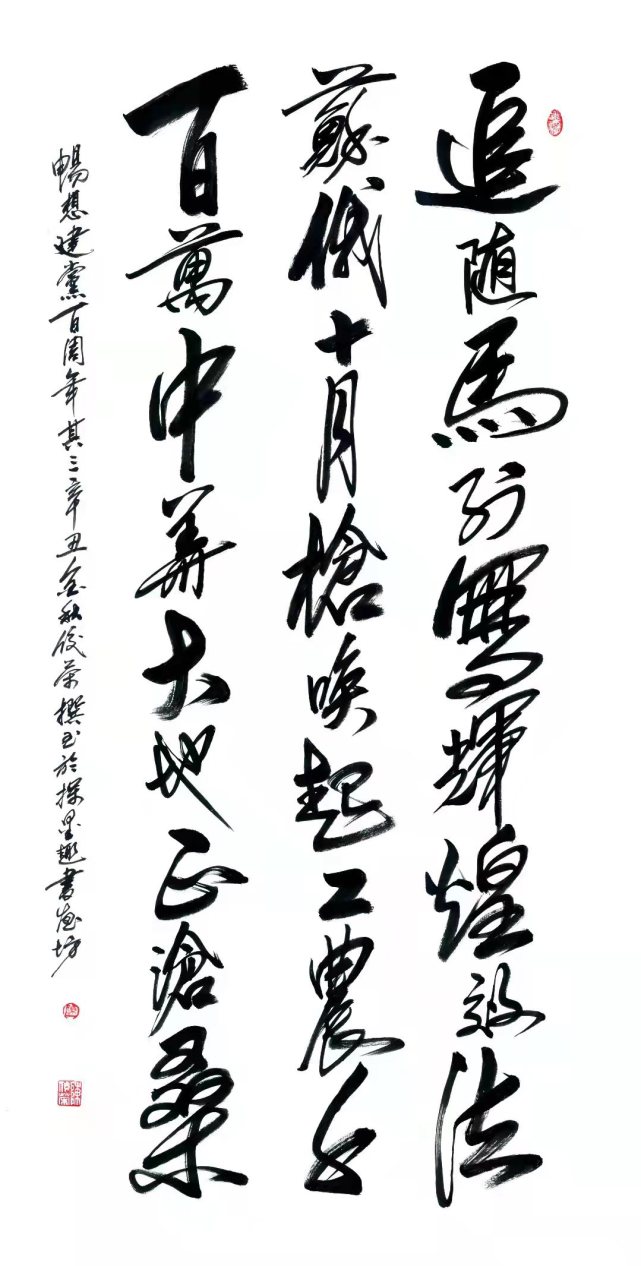 追随馬列寫輝煌效法
蘇俄十月槍喚起工農千
百萬中華大地正滄桑
暢想建黨百周年其三辛丑金秋俊荣撰书於探墨趣書画坊